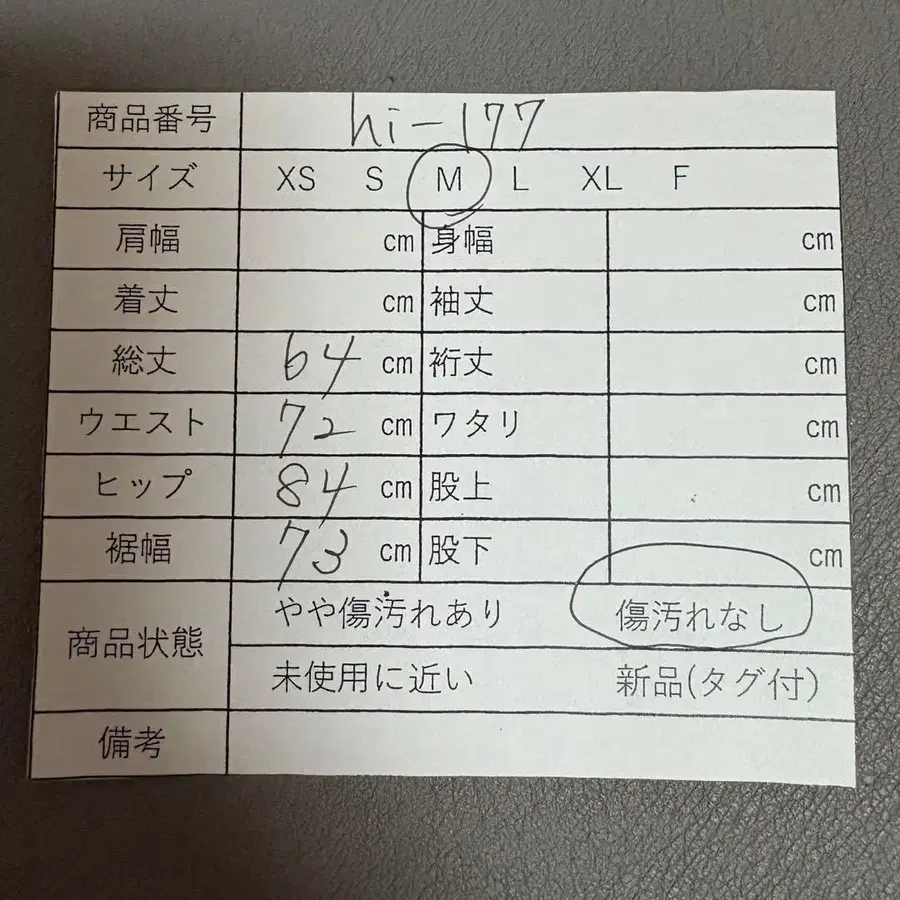 商品番号 hi-177
サイズ XS S M L XL F
肩幅 cm 身幅 cm
着丈 cm 袖丈 cm
総丈 64 cm 裄丈 cm
ウエスト 72 cm ワタリ cm
ヒップ 84 cm 股上 cm
裾幅 73 cm 股下 cm
商品状態 やや傷汚れあり 傷汚れなし
未使用に近い 新品(タグ付)
備考